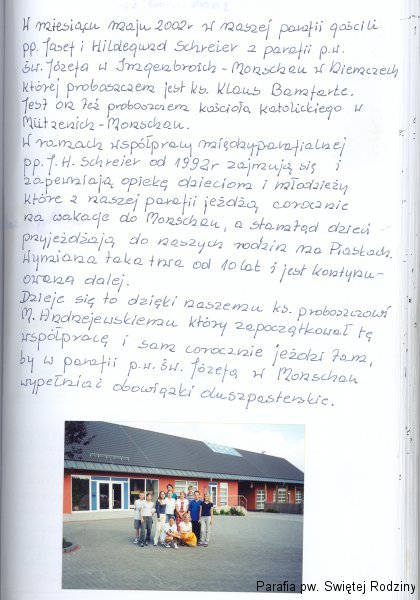 W miesiącu maju 2002r w naszej parafii gościli
pp. Josef i Hildegund Schreier z parafii p.w.
św. Józefa w Imgenbroich - Monschau w Niemczech
której proboszczem jest ks. Klaus
Jest on też proboszczem kościoła katolickiego w
Mützenich - Monschau.
W ramach współpracy międzyparafialnej
pp. J. H. Schreier od 1992r zajmują się i
zapewniają opiekę dzieciom i młodzieży
które z naszej parafii jeżdżą corocznie
na wakacje do Monschau, a stamtąd dzieci
przyjeżdżają do naszych rodzin na Piaskach.
Wymiana taka trwa od 10 lat i jest kontynu-
owana dalej.
Dzieje się to dzięki naszemu ks. proboszczowi
M. Andrzejewskiemu który zapoczątkował tę
współpracę i sam corocznie jeździ tam,
by w parafii p.w. św. Józefa w Monschau
wypełniać obowiązki duszpasterskie.
Parafia pw. Świętej Rodziny